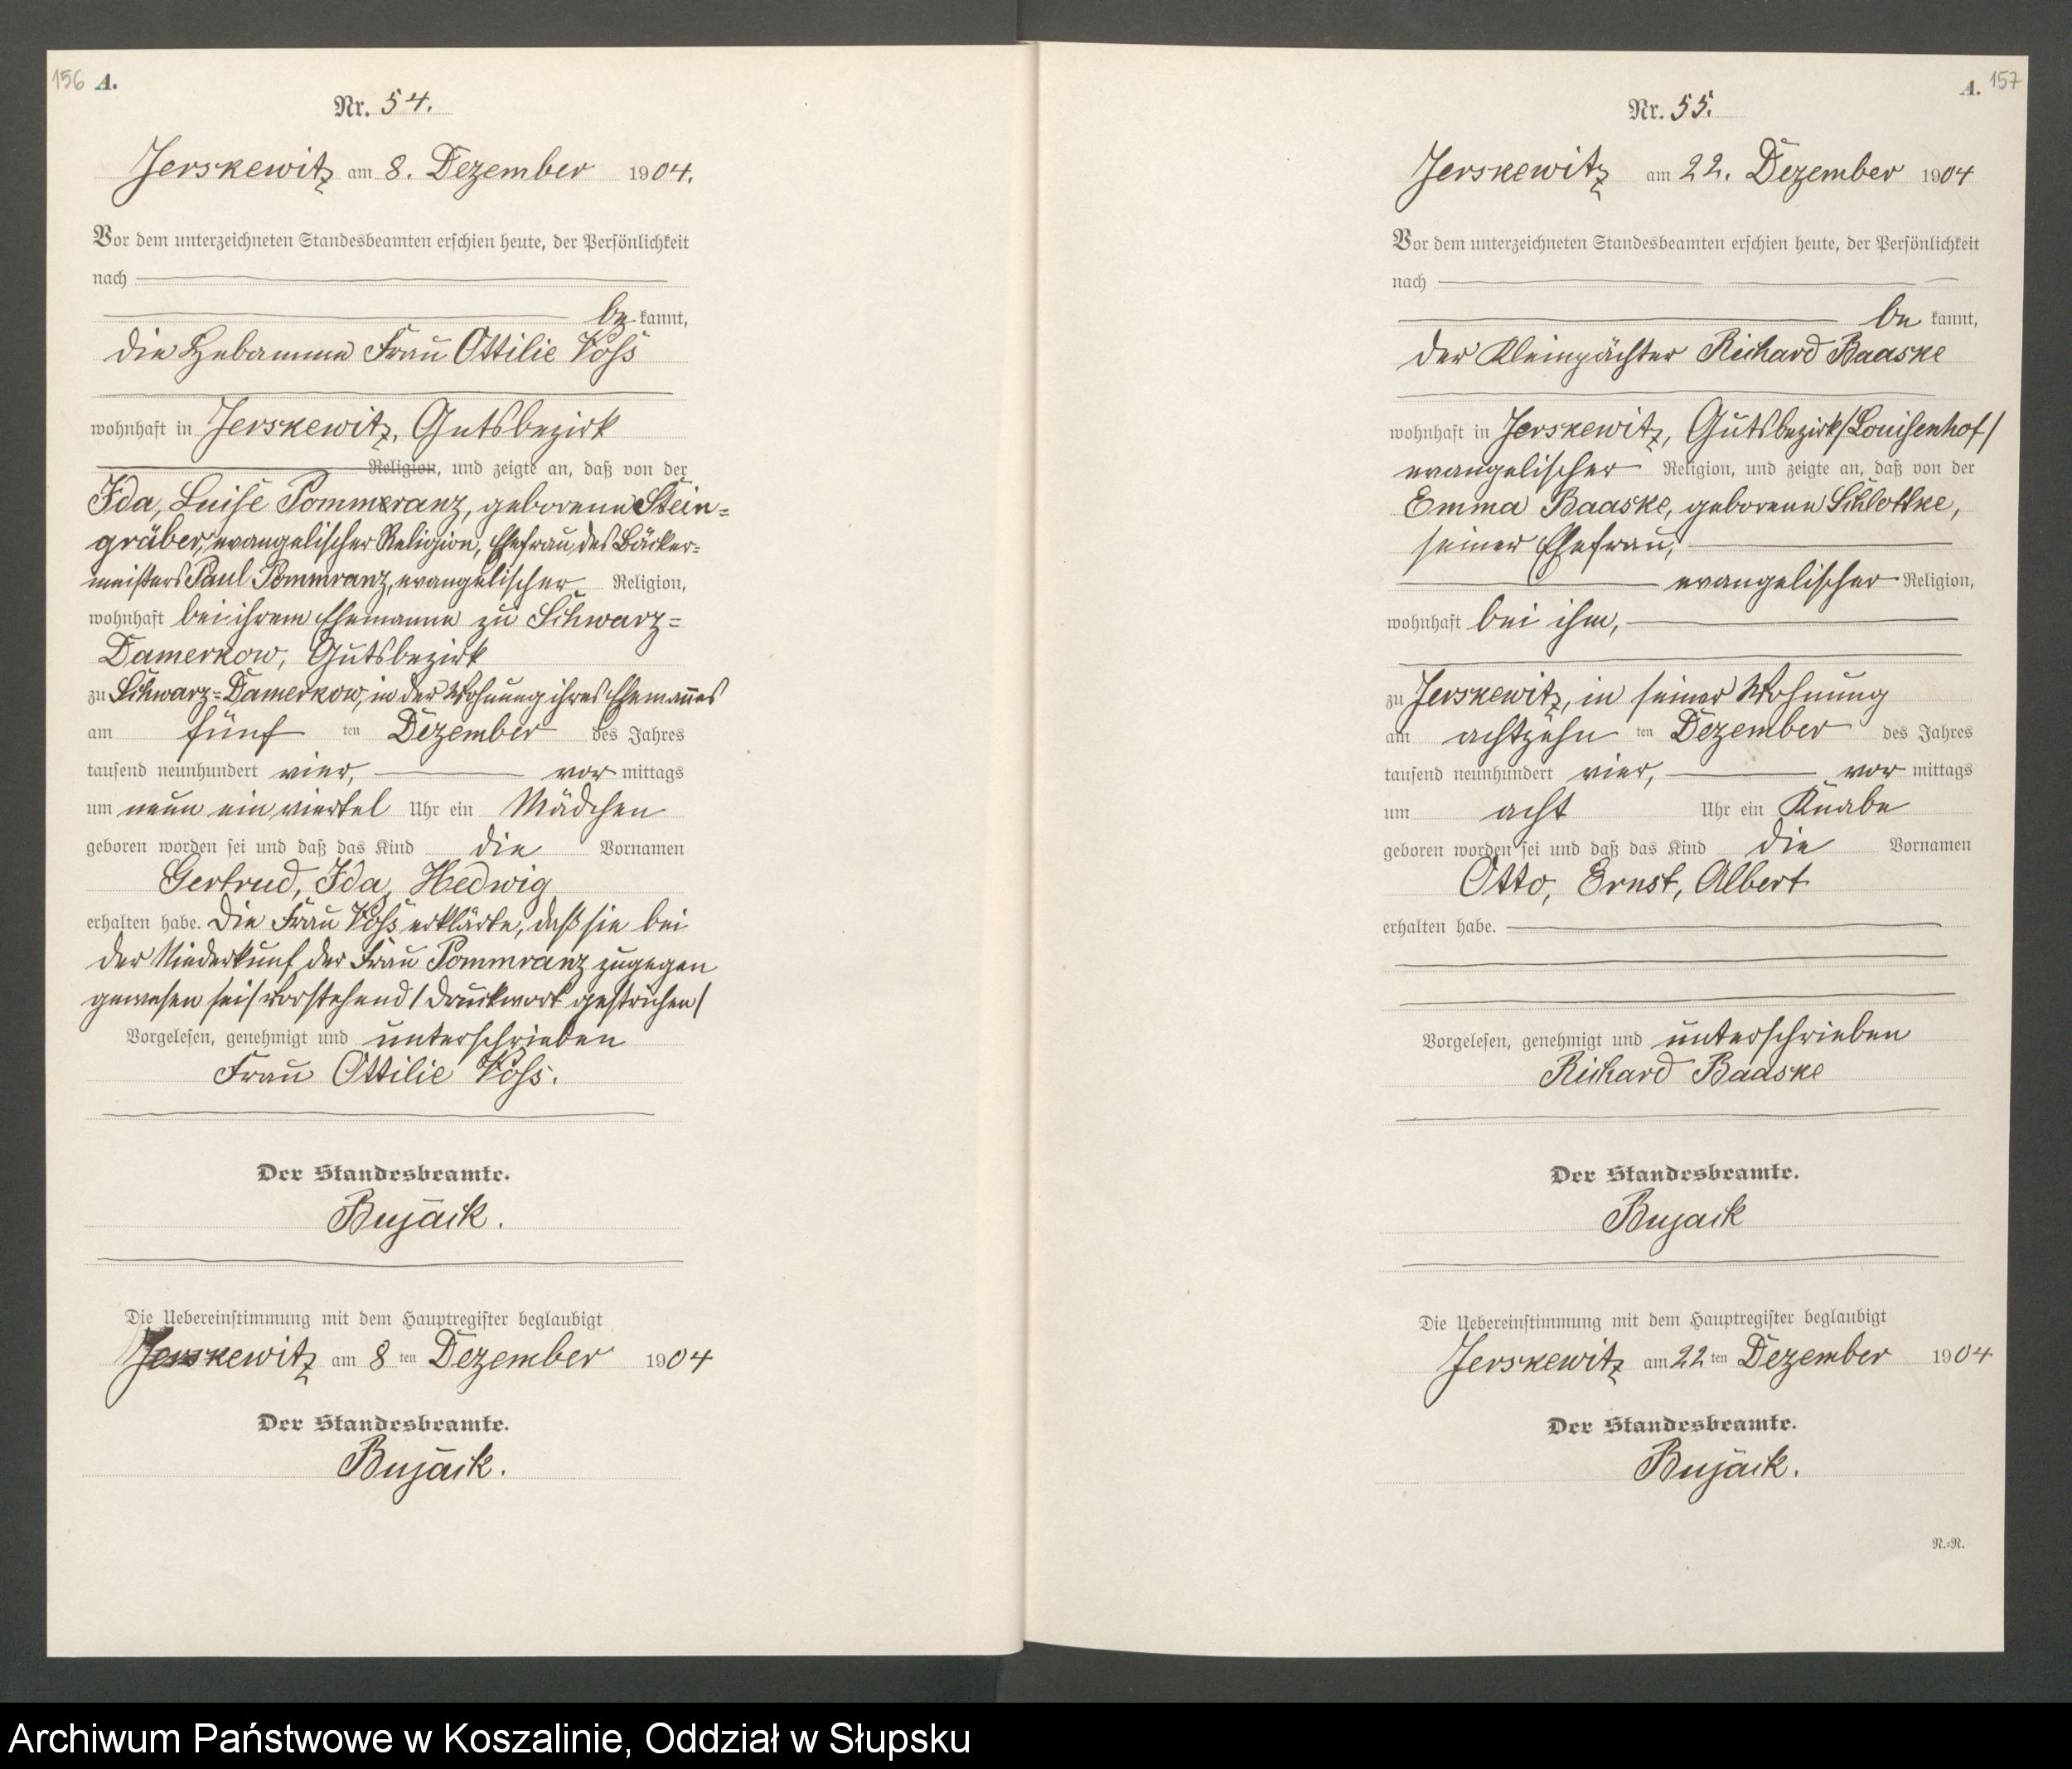 156 A.
Nr. 54.
Jerskewitz am 8. Dezember 1904.
Vor dem unterzeichneten Standesbeamten erschien heute, der Persönlichkeit
nach
be kannt,
die Hebamme Frau Ottilie Voß
wohnhaft in Jerskewitz, Gutsbezirk
Religion, und zeigte an, daß von der
Ida, Luise Pommeranz, geborene Stein=
gräber, evangelischer Religion, Ehefrau des Bäcker=
meisters Paul Pommranz, evangelischer Religion,
wohnhaft bei ihrem Ehemanne zu Schwarz=
Damerkow, Gutsbezirk
zu Schwarz=Damerkow, in der Wohnung ihres Ehemannes
am fünf ten Dezember des Jahres
tausend neunhundert vier, vor mittags
um neun ein viertel Uhr ein Mädchen
geboren worden sei und daß das Kind die Vornamen
Gertrud, Ida, Hedwig
erhalten habe. Die Frau Voß erklärte, daß sie bei
der Niederkunft der Frau Pommranz zugegen
gewesen sei/ vorstehend 1 Druckwort gestrichen/
Vorgelesen, genehmigt und unterschrieben
Frau Ottilie Voß.
Der Standesbeamte.
Bujack.
Die Uebereinstimmung mit dem Hauptregister beglaubigt
Jerskewitz am 8 ten Dezember 1904
Der Standesbeamte.
Bujack.
A. 157
Nr. 55.
Jerskewitz am 22. Dezember 1904
Vor dem unterzeichneten Standesbeamten erschien heute, der Persönlichkeit
nach
be kannt,
der Kleinpächter Richard Baaske
wohnhaft in Jerskewitz, Gutsbezirk/Louisenhof/
evangelischer Religion, und zeigte an, daß von der
Emma Baaske, geborene Schlottke,
seiner Ehefrau,
evangelischer Religion,
wohnhaft bei ihm,
zu Jerskewitz, in seiner Wohnung
am achtzehn ten Dezember des Jahres
tausend neunhundert vier, vor mittags
um acht Uhr ein Knabe
geboren worden sei und daß das Kind die Vornamen
Otto, Ernst, Albert
erhalten habe.
Vorgelesen, genehmigt und unterschrieben
Richard Baaske
Der Standesbeamte.
Bujack
Die Uebereinstimmung mit dem Hauptregister beglaubigt
Jerskewitz am 22 ten Dezember 1904
Der Standesbeamte.
Bujack.
N.=N.
Archiwum Państwowe w Koszalinie, Oddział w Słupsku